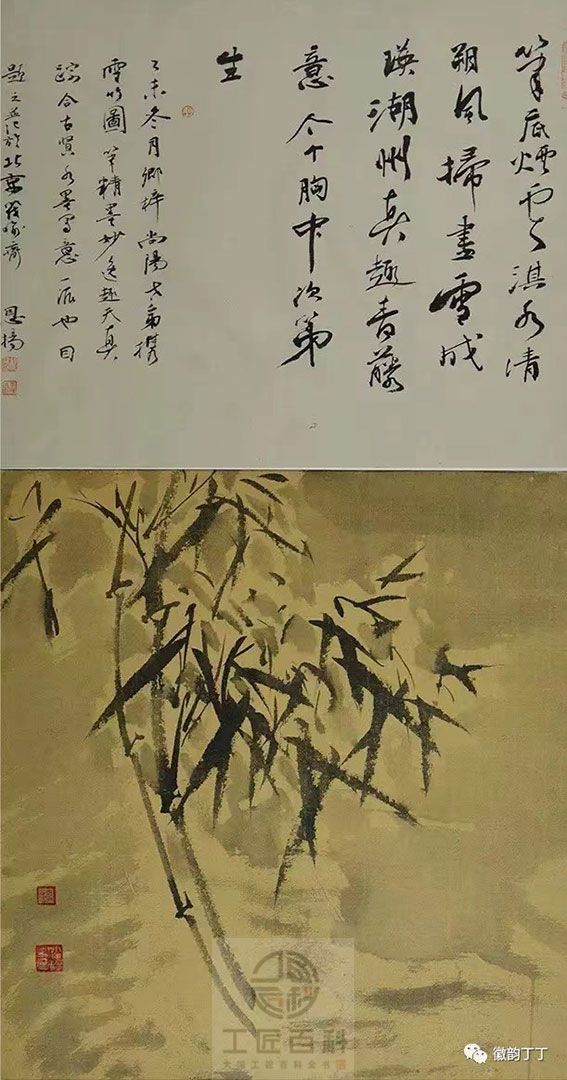 筆底煙雲淇水清
朔風掃盡雪成
瑛湖州真趣青藤
意个个胸中次第
生
乙未冬月鄉梓尚陽攜
雪竹圖筆精墨妙逸趣天真
踪合古賢水墨寫意一派也因
題之並記於北京齋 恩揚
工匠百科
大国工匠百科全书
徽韵丁丁